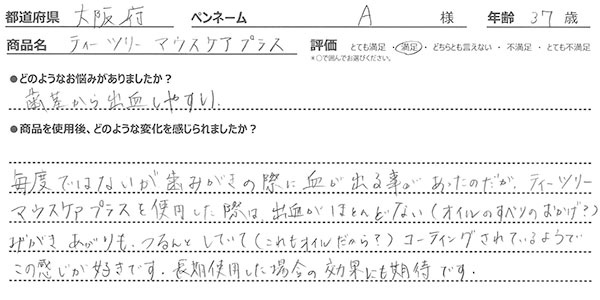 都道府県 大阪府 ペンネーム A 様 年齢 37 歳
商品名 ティーツリー マウスケアプラス 評価 とても満足 ・ 満足 ・ どちらとも言えない ・ 不満足 ・ とても不満足
*○で囲んでお選びください。
●どのようなお悩みがありましたか？
歯茎から出血しやすい.
●商品を使用後、どのような変化を感じられましたか？
毎度ではないが歯みがきの際に血が出る事があったのだが、ティーツリー
マウスケアプラスを使用した際は、出血がほとんどない(オイルのすべりのおかげ?)
みがきあがりも、つるんとしていて(これもオイルだから?)コーティングされているようで
この感じが好きです. 長期使用した場合の効果にも期待です.